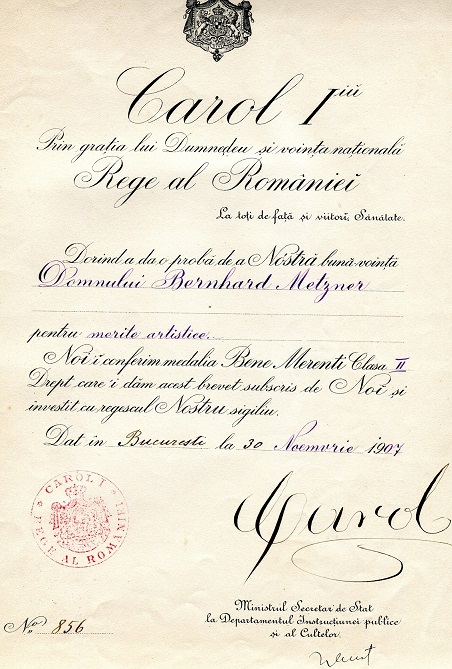 Carol I iŭ
Prin graţia lui Dumneḑeu şi voinţa naţională
Rege al Românieĭ
La toţi de faţă şi viitorĭ, Sănătate.
Dorind a da o probă de a Nostră bună-voinţă
Domnului Bernhard Metzner
pentru merite artistice.
Noĭ iĭ conferim medalia Bene Merenti Clasa II
Drept care iĭ dăm acest brevet subscris de Noĭ şi
investit cu regescul Nostru sigiliu.
Dat în Bucuresti la 30 Noemvrie 1907
CAROL I
REGE AL ROMANIEI
Carol
Ministrul Secretar de Stat
la Departamentul Instrucţiunei publice
şi al Cultelor.
No 856